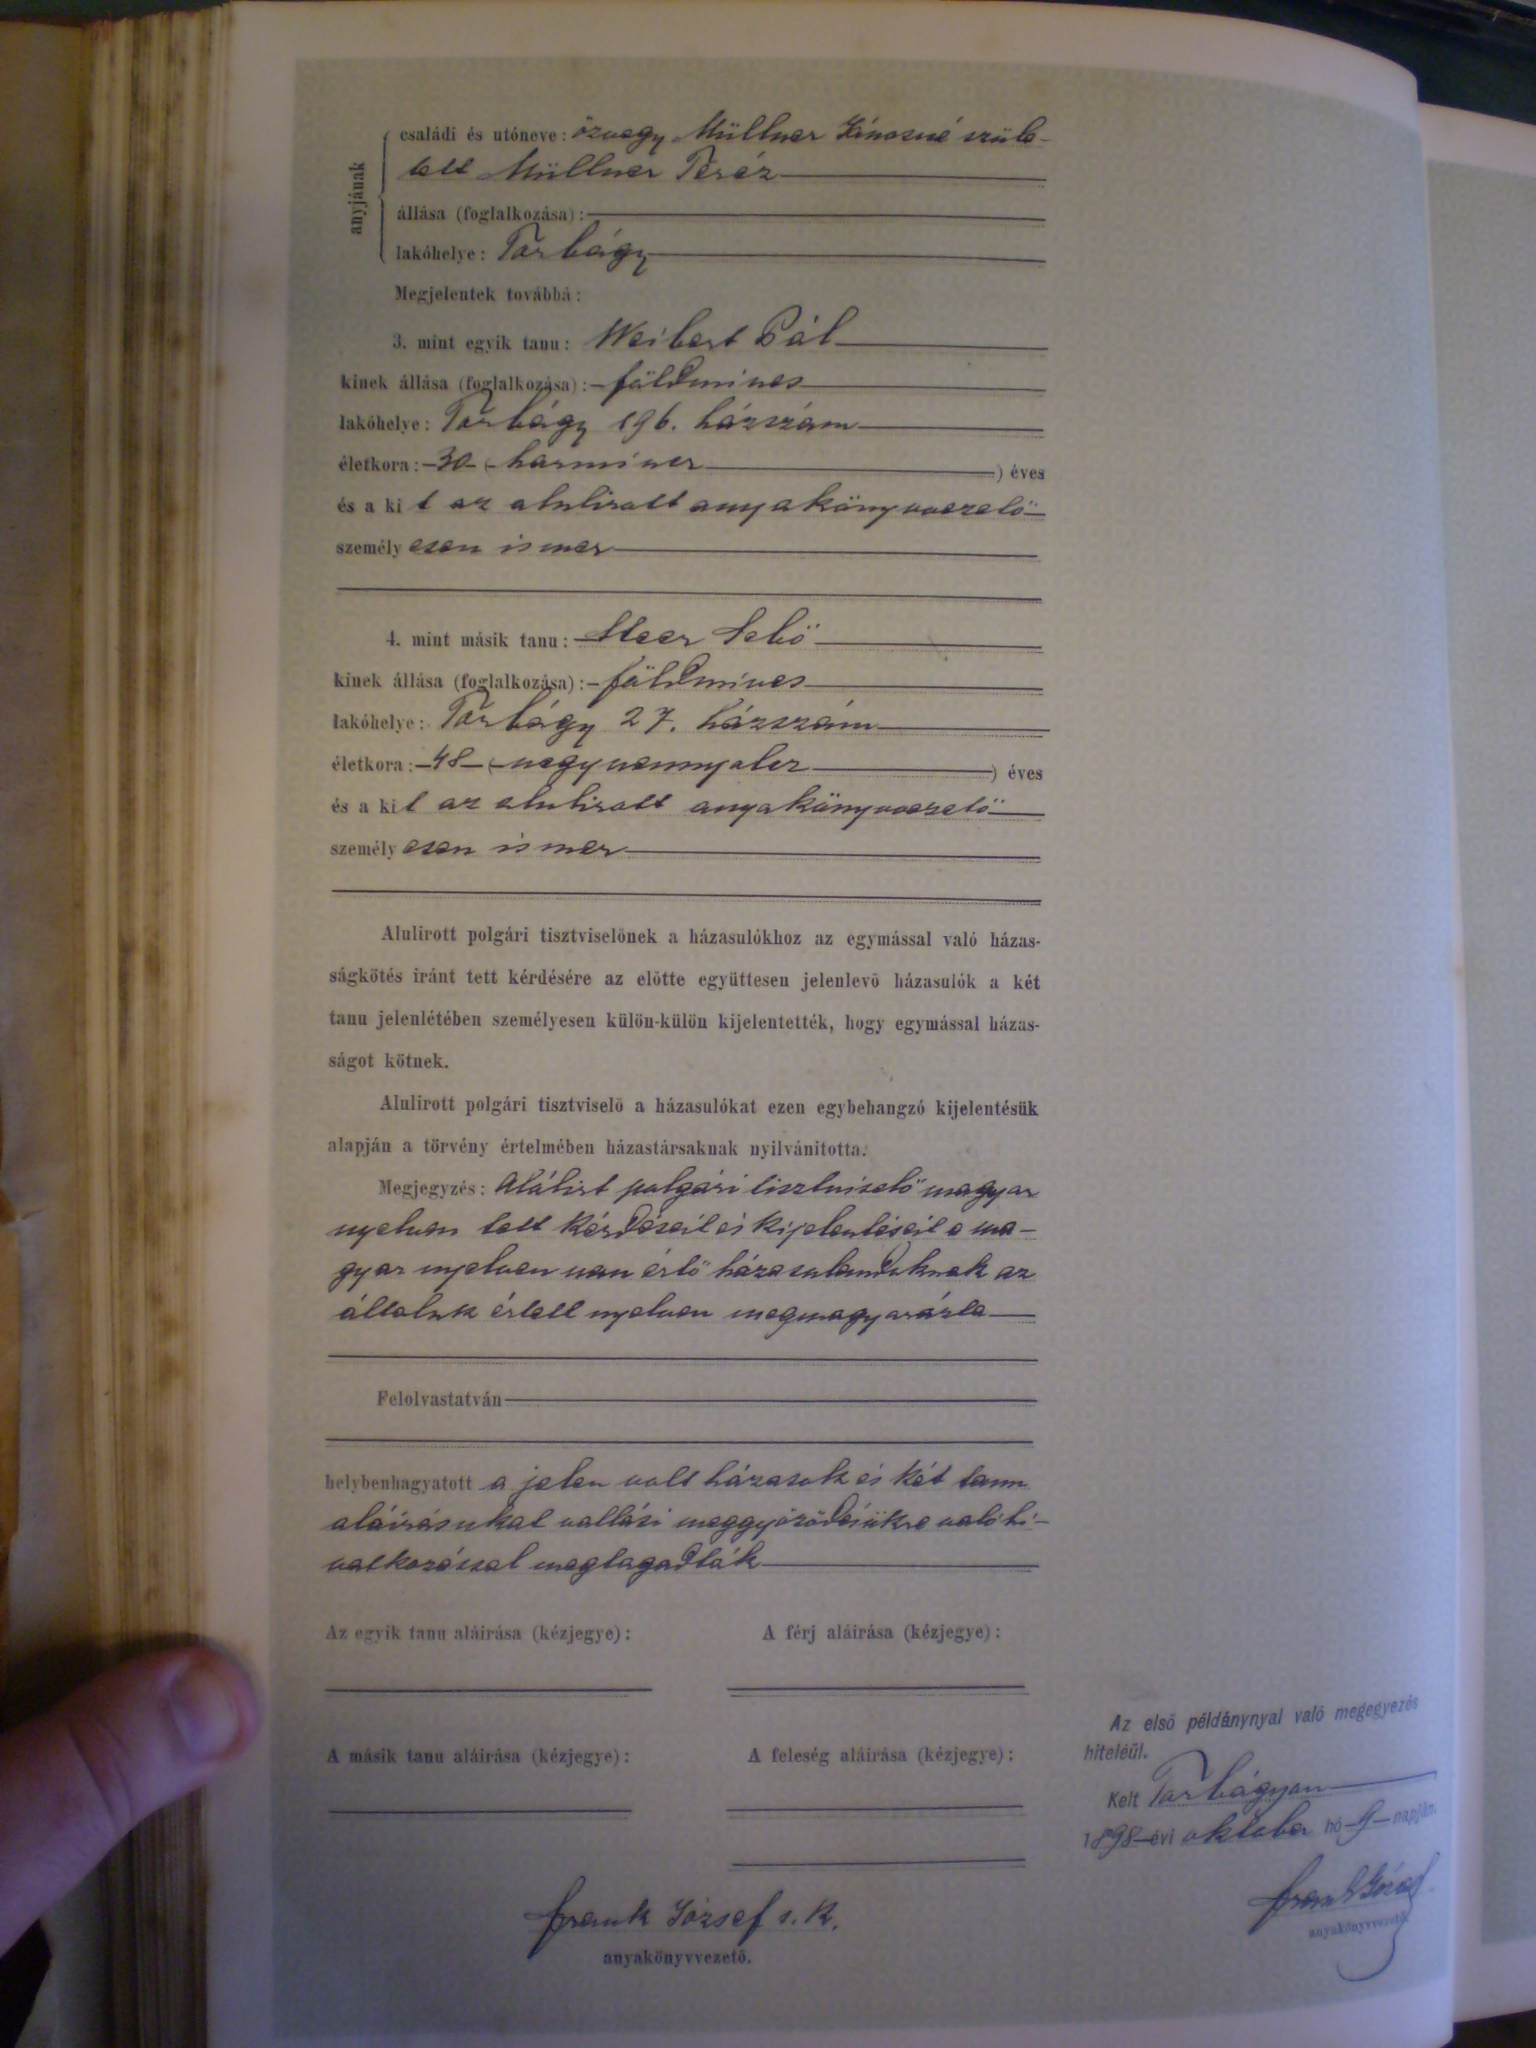 anyjának
családi és utóneve: özvegy Müllner Jánosné szüle-
tett Müllner Teréz
állása (foglalkozása):
lakóhelye: Torbágy
Megjelentek továbbá:
3. mint egyik tanu: Weibert Pál
kinek állása (foglalkozása): földmives
lakóhelye: Torbágy 196. házszám
életkora: -30- (-harmincz) éves
és a ki t az alulirott anyakönyvvezető
személy esen ismer
4. mint másik tanu: Steer
kinek állása (foglalkozása): földmives
lakóhelye: Torbágy 27. házszám
életkora: -48- (-negyvennyolcz) éves
és a kit az alulirott anyakönyvvezető
személy esen ismer
Alulirott polgári tisztviselőnek a házasulókhoz az egymással való házas-
ságkötés iránt tett kérdésére az előtte együttesen jelenlevő házasulók a két
tanu jelenlétében személyesen külön-külön kijelentették, hogy egymással házas-
ságot kötnek.
Alulirott polgári tisztviselő a házasulókat ezen egybehangzó kijelentésük
alapján a törvény értelmében házastársaknak nyilvánitotta.
Megjegyzés: Alálirt polgári tisztviselő magyar
nyelven tett kérdéseit és kijelentéseit a ma-
gyar nyelven nem értő házasulandoknak az
általuk értett nyelven megmagyarázta
Felolvastatván
helybenhagyatott a jelen volt házasok és két tanu
aláirásukat vallási meggyőződésükre való hi-
vatkozással megtagadták
Az egyik tanu aláirása (kézjegye):
A férj aláirása (kézjegye):
A másik tanu aláirása (kézjegye):
A feleség aláirása (kézjegye):
Frank József s. k.
anyakönyvvezető.
Az első példánynyal való megegyezés
hiteléül.
Kelt Torbágyon
1898 évi október hó -9- napján.
Frank József
anyakönyvvezető